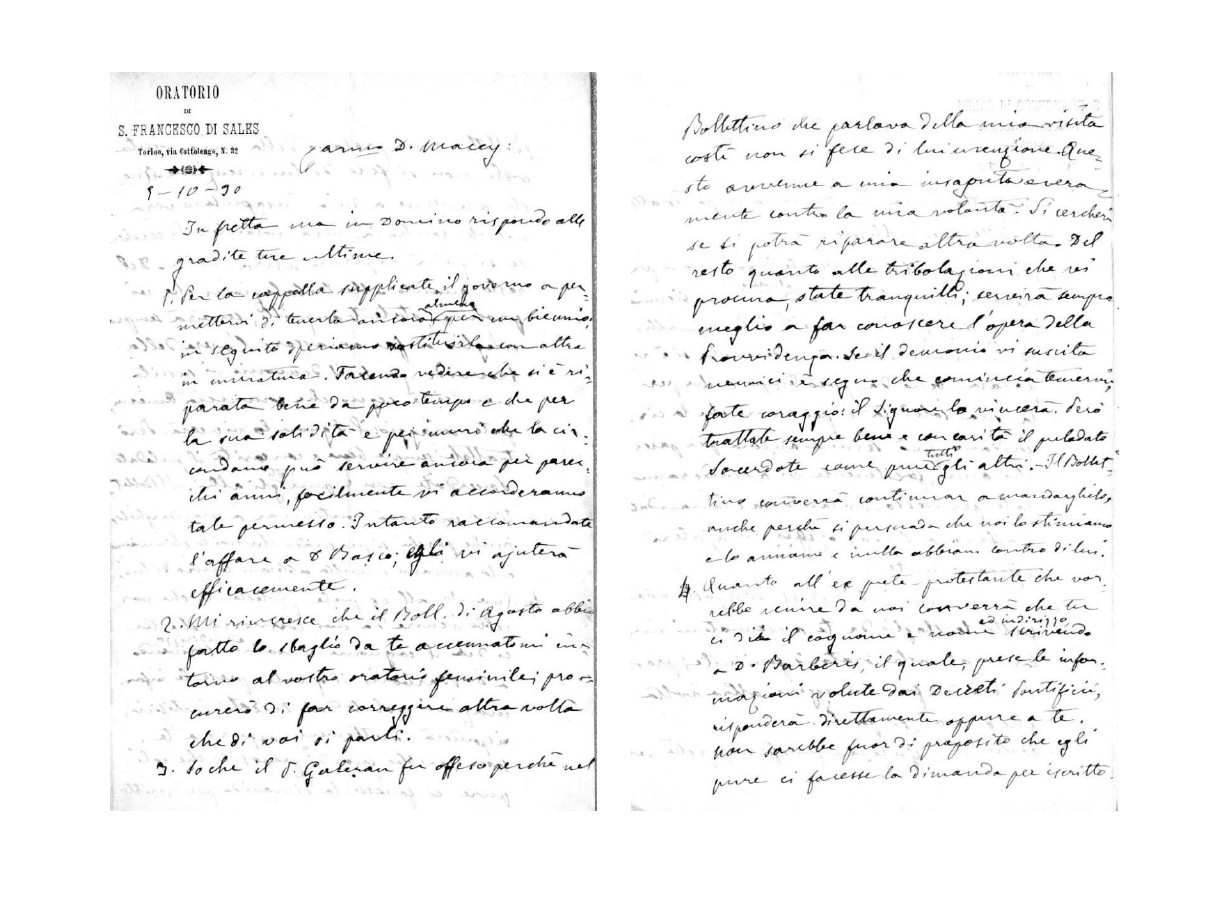 ORATORIO
DI
S. FRANCESCO DI SALES
Torino, via Cottolengo, N. 32
D. Macey:
9-10-90
In fretta ma in Domino rispondo alle
gradite tue ultime.
1. Per la cappella supplicate il governo a per-
mettervi di tenerla ancora almeno per un biennio;
in seguito speriamo sostituirla con altra
in muratura. Facendo vedere che si è ri-
parata bene da poco tempo e che per
la sua solidità e pei muri che la cir-
condano può servire ancora per parec-
chi anni, facilmente vi accorderanno
tale permesso. Intanto raccomandate
l'affare a D Basco; egli vi ajuterà
efficacemente.
2. Mi rincresce che il Boll. di Agosto abbia
fatto lo sbaglio da te accennatomi in-
torno al vostro oratorio femminile; pro-
curerò di far correggere altra volta
che di voi si parli.
3. So che il S. Galeran fu offeso perchè nel
Bollettino che parlava della mia visita
costì non si fece di lui menzione. Que-
sto avvenne a mia insaputa e vera-
mente contro la mia volontà. Si cercherà
se si potrà riparare altra volta. Del
resto quanto alle tribolazioni che vi
procura, state tranquilli; servirà sempre
meglio a far conoscere l'opera della
Provvidenza. Se il demonio vi suscita
nemici è segno che comincia temervi;
fate coraggio: il Signore lo vincerà. Però
trattate sempre bene e con carità il prelodato
Sacerdote come pure tutti gli altri. - Il Bollet-
tino converrà continuar a mandarglielo,
anche perchè si persuada che noi lo stimiamo
e lo amiamo e nulla abbiam contro di lui.
4. Quanto all'ex prete-protestante che vor-
rebbe venire da noi converrà che tu
ci dia il cognome e nome ed indirizzo scrivendo
a D. Barberis, il quale, prese le infor-
mazioni volute dai Decreti Pontificii,
risponderà direttamente oppure a te.
Non sarebbe fuor di proposito che egli
pure ci facesse la dimanda per iscritto.